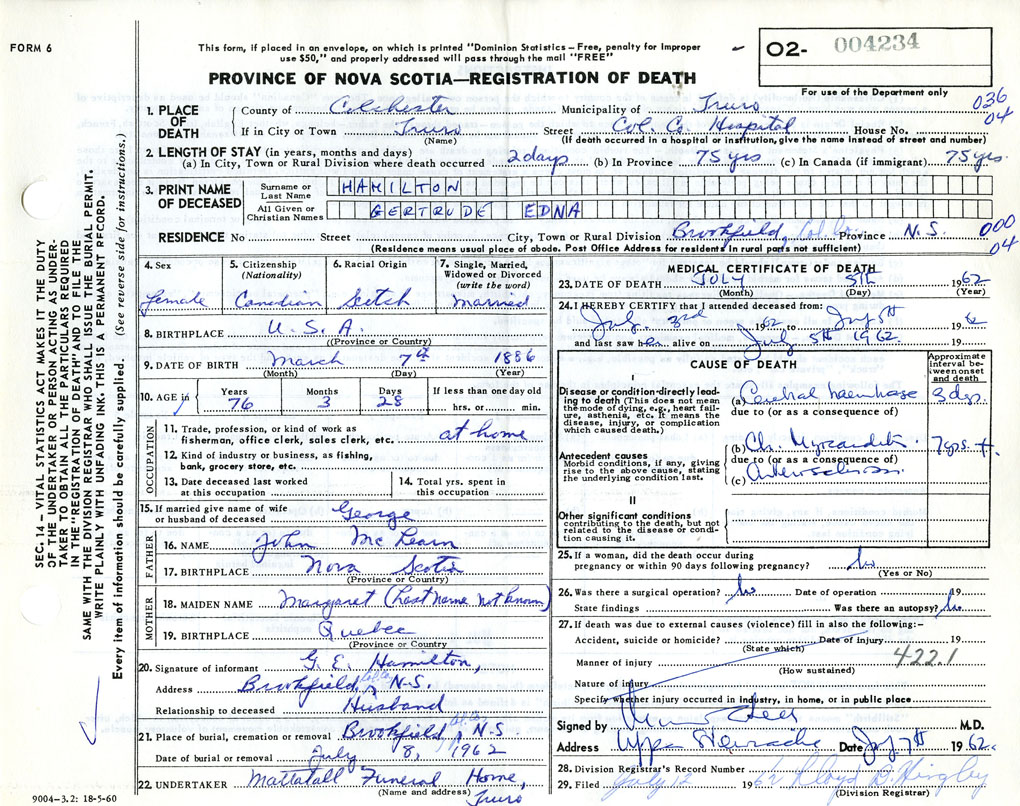 FORM 6
This form, if placed in an envelope, on which is printed "Dominion Statistics – Free, penalty for improper
use $50," and properly addressed will pass through the mail "FREE"
PROVINCE OF NOVA SCOTIA—REGISTRATION OF DEATH
O2- 004234
For use of the Department only
036
04
1. PLACE OF DEATH
County of Colchester Municipality of Truro
If in City or Town Truro Street Col. Co. Hospital House No.
(Name) (If death occurred in a hospital or institution, give the name instead of street and number)
2. LENGTH OF STAY (in years, months and days)
(a) In City, Town or Rural Division where death occurred 2 days (b) In Province 75 yrs (c) In Canada (if immigrant) 75 yrs
3. PRINT NAME OF DECEASED
Surname or Last Name HAMILTON
All Given or Christian Names GERTRUDE EDNA
RESIDENCE No Street City, Town or Rural Division Brookfield, Col. Co. Province N.S.
(Residence means usual place of abode. Post Office Address for residents in rural parts not sufficient)
000
04
4. Sex
Female
5. Citizenship
(Nationality)
Canadian
6. Racial Origin
Scotch
7. Single, Married,
Widowed or Divorced
(write the word)
Married
8. BIRTHPLACE U.S.A.
(Province or Country)
9. DATE OF BIRTH March 7th 1886
(Month) (Day) (Year)
10. AGE in
Years 76
Months 3
Days 28
If less than one day old
hrs. or min.
OCCUPATION
11. Trade, profession, or kind of work as
fisherman, office clerk, sales clerk, etc. at home
12. Kind of industry or business, as fishing,
bank, grocery store, etc.
13. Date deceased last worked
at this occupation
14. Total yrs. spent in
this occupation
15. If married give name of wife
or husband of deceased George
FATHER
16. NAME John McLearn
17. BIRTHPLACE Nova Scotia
(Province or Country)
MOTHER
18. MAIDEN NAME Margaret (Last name not known)
19. BIRTHPLACE Quebec
(Province or Country)
20. Signature of informant G. E. Hamilton,
Address Brookfield, Col. Co. N-S.
Relationship to deceased Husband
21. Place of burial, cremation or removal Brookfield, Col. Co. N-S
Date of burial or removal July 8, 1962
22. UNDERTAKER Mattatall Funeral Home,
(Name and address) Truro
9004-3.2: 18-5-60
MEDICAL CERTIFICATE OF DEATH
23. DATE OF DEATH JULY 5th 1962
(Month) (Day) (Year)
24. I HEREBY CERTIFY that I attended deceased from:
July 3rd 1962 to July 5th 1962
and last saw her alive on July 5th 1962
CAUSE OF DEATH
Approximate
interval be-
tween onset
and death
I
Disease or condition directly lead-
ing to death (This does not mean
the mode of dying, e.g., heart fail-
ure, asthenia, etc. It means the
disease, injury, or complication
which caused death.)
(a) Cerebral haemorrhage 3 dys.
due to (or as a consequence of)
Antecedent causes
Morbid conditions, if any, giving
rise to the above cause, stating
the underlying condition last.
(b) Ch. Myocarditis. 7 yrs. +
due to (or as a consequence of)
(c) Arteriosclerosis.
II
Other significant conditions
contributing to the death, but not
related to the disease or condi-
tion causing it.
25. If a woman, did the death occur during
pregnancy or within 90 days following pregnancy? No
(Yes or No)
26. Was there a surgical operation? No Date of operation 19
State findings Was there an autopsy? No
27. If death was due to external causes (violence) fill in also the following:–
Accident, suicide or homicide? Date of injury 19
(State which)
Manner of injury 422.1
(How sustained)
Nature of injury
Specify whether injury occurred in industry, in home, or in public place
Signed by M.D.
Address Upper Stewiacke Date July 7th 1962.
28. Division Registrar's Record Number
29. Filed July 12 1962 Lloyd B. Hingley
(Division Registrar)
SEC. 14 – VITAL STATISTICS ACT MAKES IT THE DUTY
OF THE UNDERTAKER OR PERSON ACTING AS UNDER-
TAKER TO OBTAIN ALL THE PARTICULARS REQUIRED
IN THE "REGISTRATION OF DEATH" AND TO FILE THE
SAME WITH THE DIVISION REGISTRAR WHO SHALL ISSUE THE BURIAL PERMIT.
WRITE PLAINLY WITH UNFADING INK. THIS IS A PERMANENT RECORD.
Every item of information should be carefully supplied. (See reverse side for instructions.)